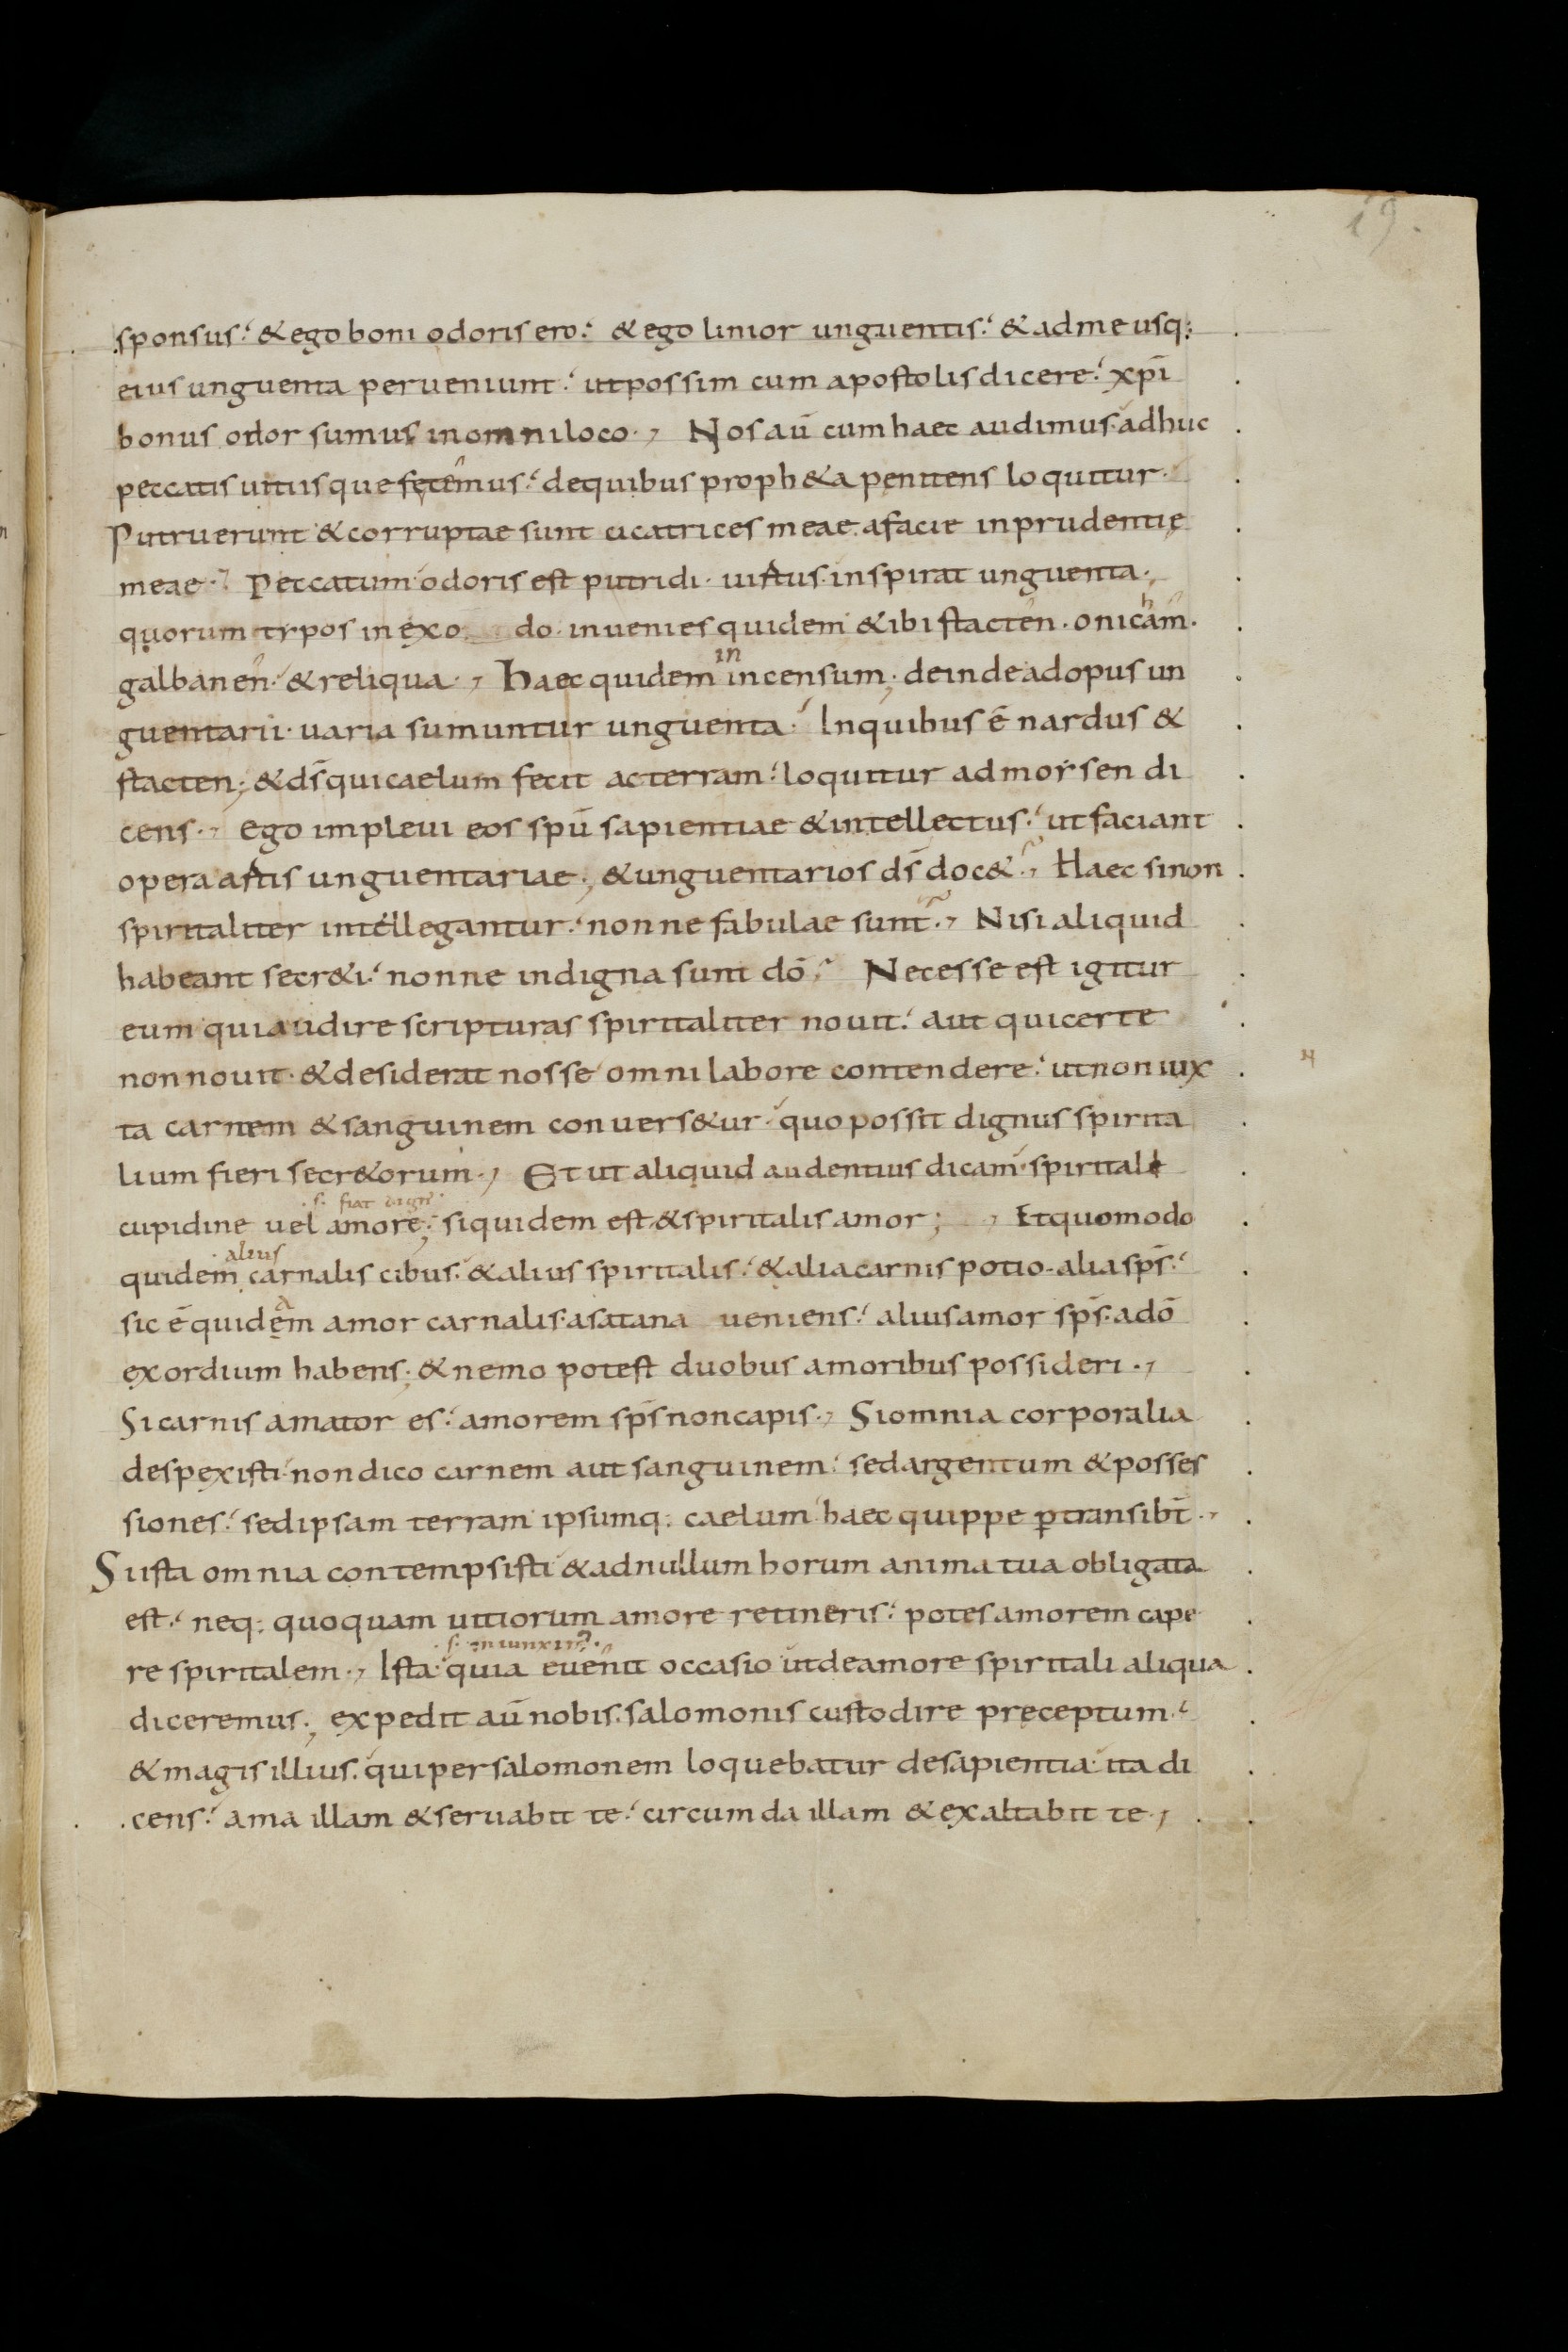 19.
sponsus.' & ego boni odoris ero.' & ego linior unguentis.' & ad me usq;
eius unguenta perueniunt.' ut possim cum apostolis dicere.' xpī
bonus odor sumus in omni loco., Nos aū cum haec audimus adhuc
peccatis uitiisque fętemus.' de quibus proph&a penitens loquitur.
Putruerunt & corruptae sunt cicatrices meae. a facie inprudentię
meae., Peccatum odoris est putridi. uirtus inspirat unguenta.,
quorum tỳpos in exo do. inuenies quidem & ibi stacten. onicam.
h
galbanen. & reliqua., Haec quidem incensum; deinde ad opus un
in
guentarii. uaria sumuntur unguenta.' In quibus ē nardus &
stacten; & dš qui caelum fecit ac terram.' loquitur ad morsen di
cens., ego impleui eos spū sapientiae & intellectus.' ut faciant
opera artis unguentariae; & unguentarios dš doc&., Haec si non
spiritaliter intellegantur.' nonne fabulae sunt., Nisi aliquid
habeant secr&i.' nonne indigna sunt dō. Necesse est igitur
eum qui audire scripturas spiritaliter nouit.' aut qui certe
non nouit. & desiderat nosse omni labore contendere.' ut non iux
ta carnem & sanguinem conuers&ur quo possit dignus spirita
lium fieri secr&orum., Et ut aliquid audentius dicam spirital
.s. fiat dign
cupidine uel amore; siquidem est & spiritalis amor; , Et quomodo
alius
quidem carnalis cibus. & alius spiritalis.' & alia carnis potio. alia spš.'
sic ē quidęm amor carnalis. a satana ueniens.' alius amor spš. a dō
a
exordium habens; & nemo potest duobus amoribus possideri.,
Si carnis amator es.' amorem spš non capis., Si omnia corporalia
despexisti non dico carnem aut sanguinem.' sed argentum & posses
siones.' sed ipsam terram ipsumq; caelum haec quippe ꝑtransibt̄.,
Si ista omnia contempsisti & ad nullum horum anima tua obligata
est.' neq; quoquam uitiorum amore retineris.' potes amorem cape
re spiritalem., Ista quia euenit occasio ut de amore spiritali aliqua
diceremus; expedit aū nobis. salomonis custodire pręceptum.'
& magis illius. qui per salomonem loquebatur de sapientia ita di
cens.' ama illam & seruabit te.' circumda illam & exaltabit te.,